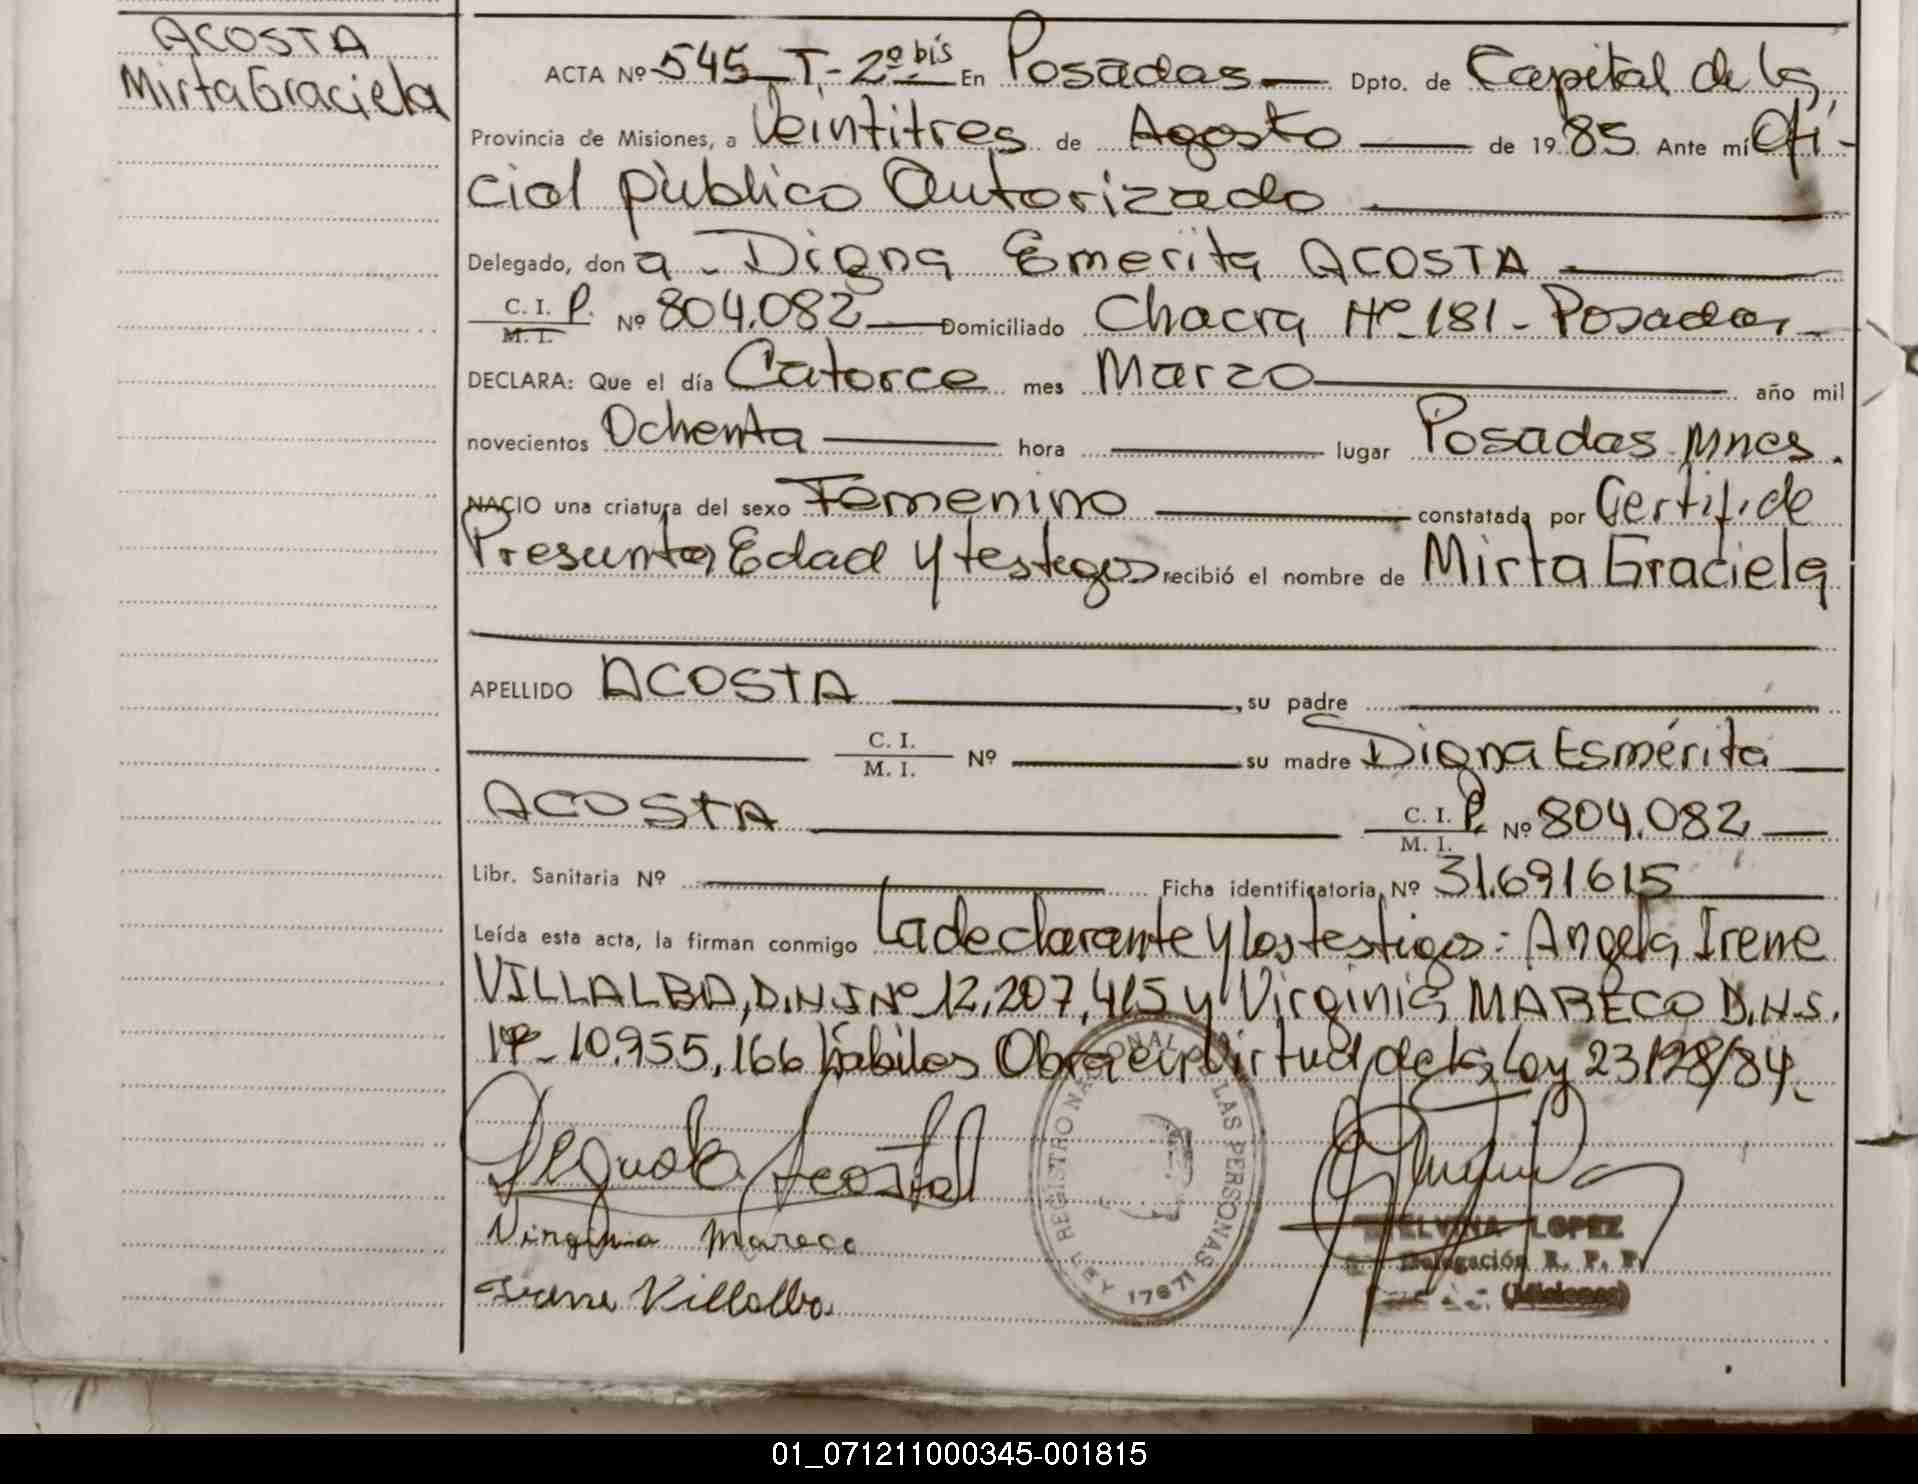 ACOSTA
Mirta Graciela
ACTA Nº 545 T- 2º bis En Posadas Dpto. de Capital de la
Provincia de Misiones, a Veintitres de Agosto de 1985 Ante mí Ofi-
cial público Autorizado
Delegado, don a - Digna Emerita ACOSTA
C. I. P. Nº 804.082 Domiciliado Chacra Nº 181 - Posadas
M. I.
DECLARA: Que el día Catorce mes Marzo año mil
novecientos Ochenta hora lugar Posadas Mnes.
NACIO una criatura del sexo Femenino constatada por Certif. de
Presunta Edad y testigos recibió el nombre de Mirta Graciela
APELLIDO ACOSTA , su padre
C. I.
M. I. Nº su madre Digna Esmérita
ACOSTA C. I. P. Nº 804.082
M. I.
Libr. Sanitaria Nº Ficha identificatoria Nº 31.691615
Leída esta acta, la firman conmigo La declarante y los testigos: Angela Irene
VILLALBA, D.N.I Nº 12.207,415 y Virginia MARECO D.N.I.
Nº- 10.955,166 hábiles Obra en virtud de la Ley 23128/84.
Acosta
Virginia Mareco
Irene Villalba
REGISTRO NACIONAL DE LAS PERSONAS
LEY 17671
ELVINA LOPEZ
Delegación R. P. P.
(Misiones)
01_071211000345-001815